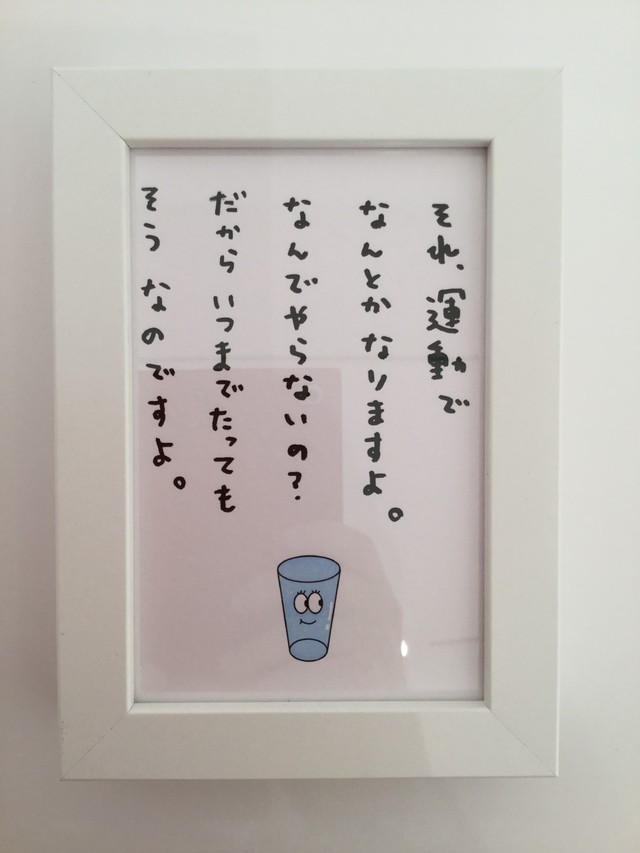 それ、運動で
なんとかなりますよ。
なんでやらないの？
だからいつまでたっても
そうなのですよ。